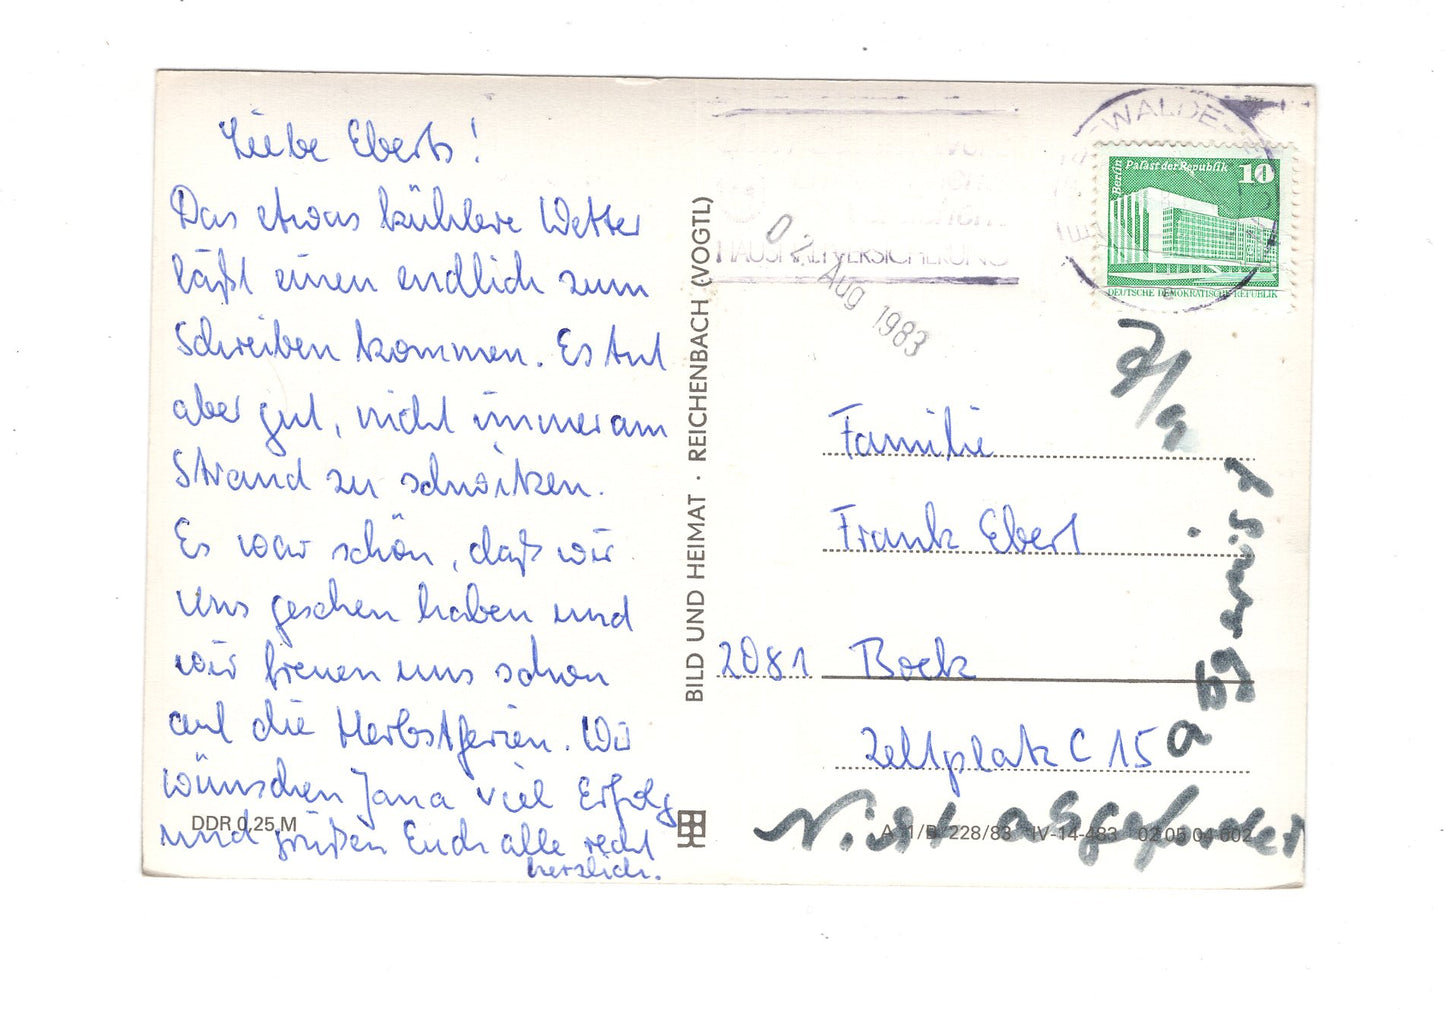 Liebe Eberts!
Das etwas kühlere Wetter
läßt einen endlich zum
Schreiben kommen. Es tut
aber gut, nicht immer am
Strand zu schwitzen.
Es war schön, daß wir
uns gesehen haben und
wir freuen uns schon
auf die Herbstferien. Wir
wünschen Jana viel Erfolg
und grüßen Euch alle recht
herzlich.
DDR 0,25 M
BILD UND HEIMAT · REICHENBACH (VOGTL)
HAUSHALTVERSICHERUNG
Aug 1983
WALDE
Berlin Palast der Republik 10
DEUTSCHE DEMOKRATISCHE REPUBLIK
Familie
Frank Ebert
2081 Boek
Zeltplatz C 15
abgereist
Nicht abgefordert
A 1/B 228/83 IV-14-483 02 05 04 602